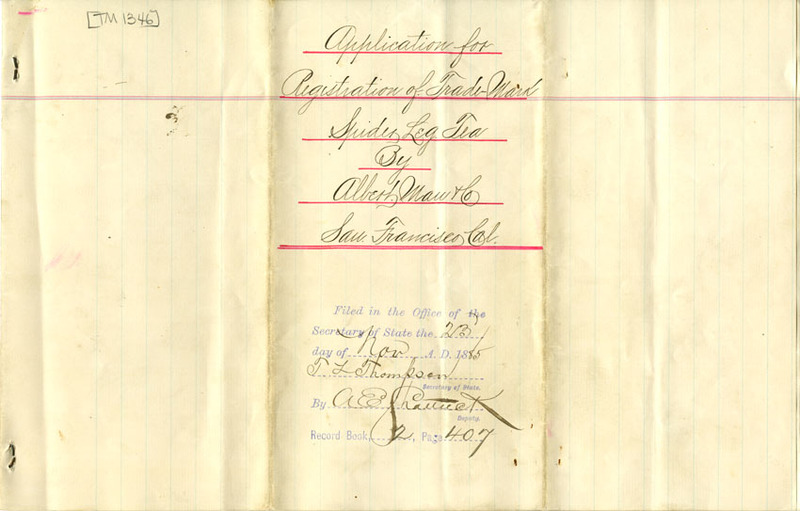 [TM 1346]
Application for
Registration of Trade-Mark
Spider Leg Tea
By
Albert Mau & Co
San Francisco, Cal.
Filed in the Office of the
Secretary of State the 23
day of Nov A. D. 1885
T L Thompson
Secretary of State.
By A E
Deputy.
Record Book, 2, Page 407